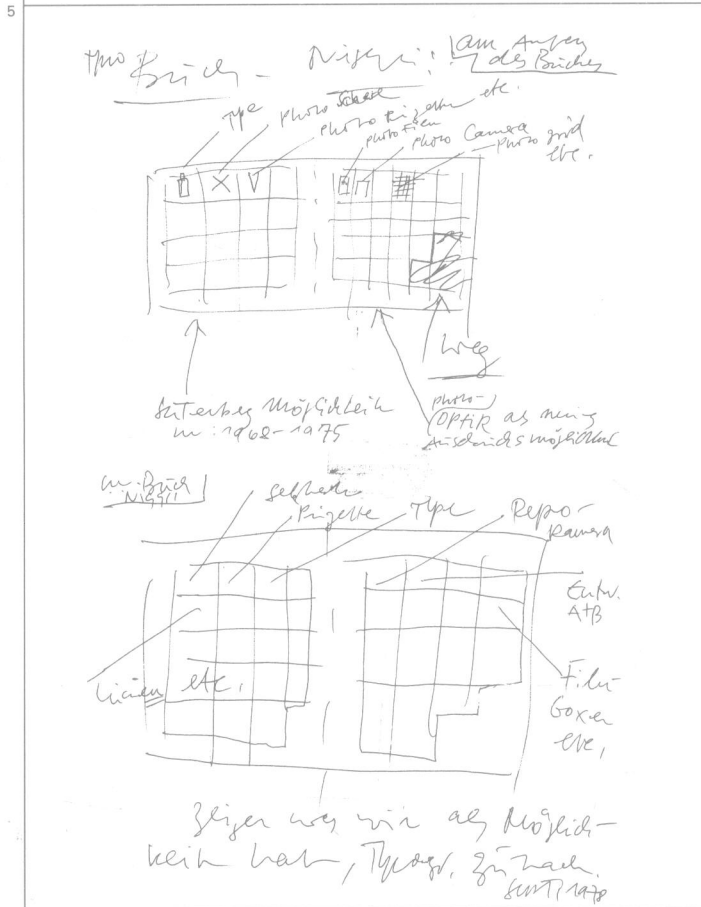 5
Typo Buch – Niggli: am Anfang
des Buches
Type
photo Schere
photo Pinzette etc.
photo Film
photo Camera
photo Grid
etc.
weg
Gutenberg Möglichkeit
1968–1975
photo-
Optik als neue
Ausdrucksmöglichkeit
im Buch
Niggli
Setzhacken
Pinzette
Type
Repro-
Kamera
Entw.
A+B
Linien etc.
Film
Boxen
etc.
Zeigen was wir als Möglich-
keit hat, Typogr. zu mach.
1978